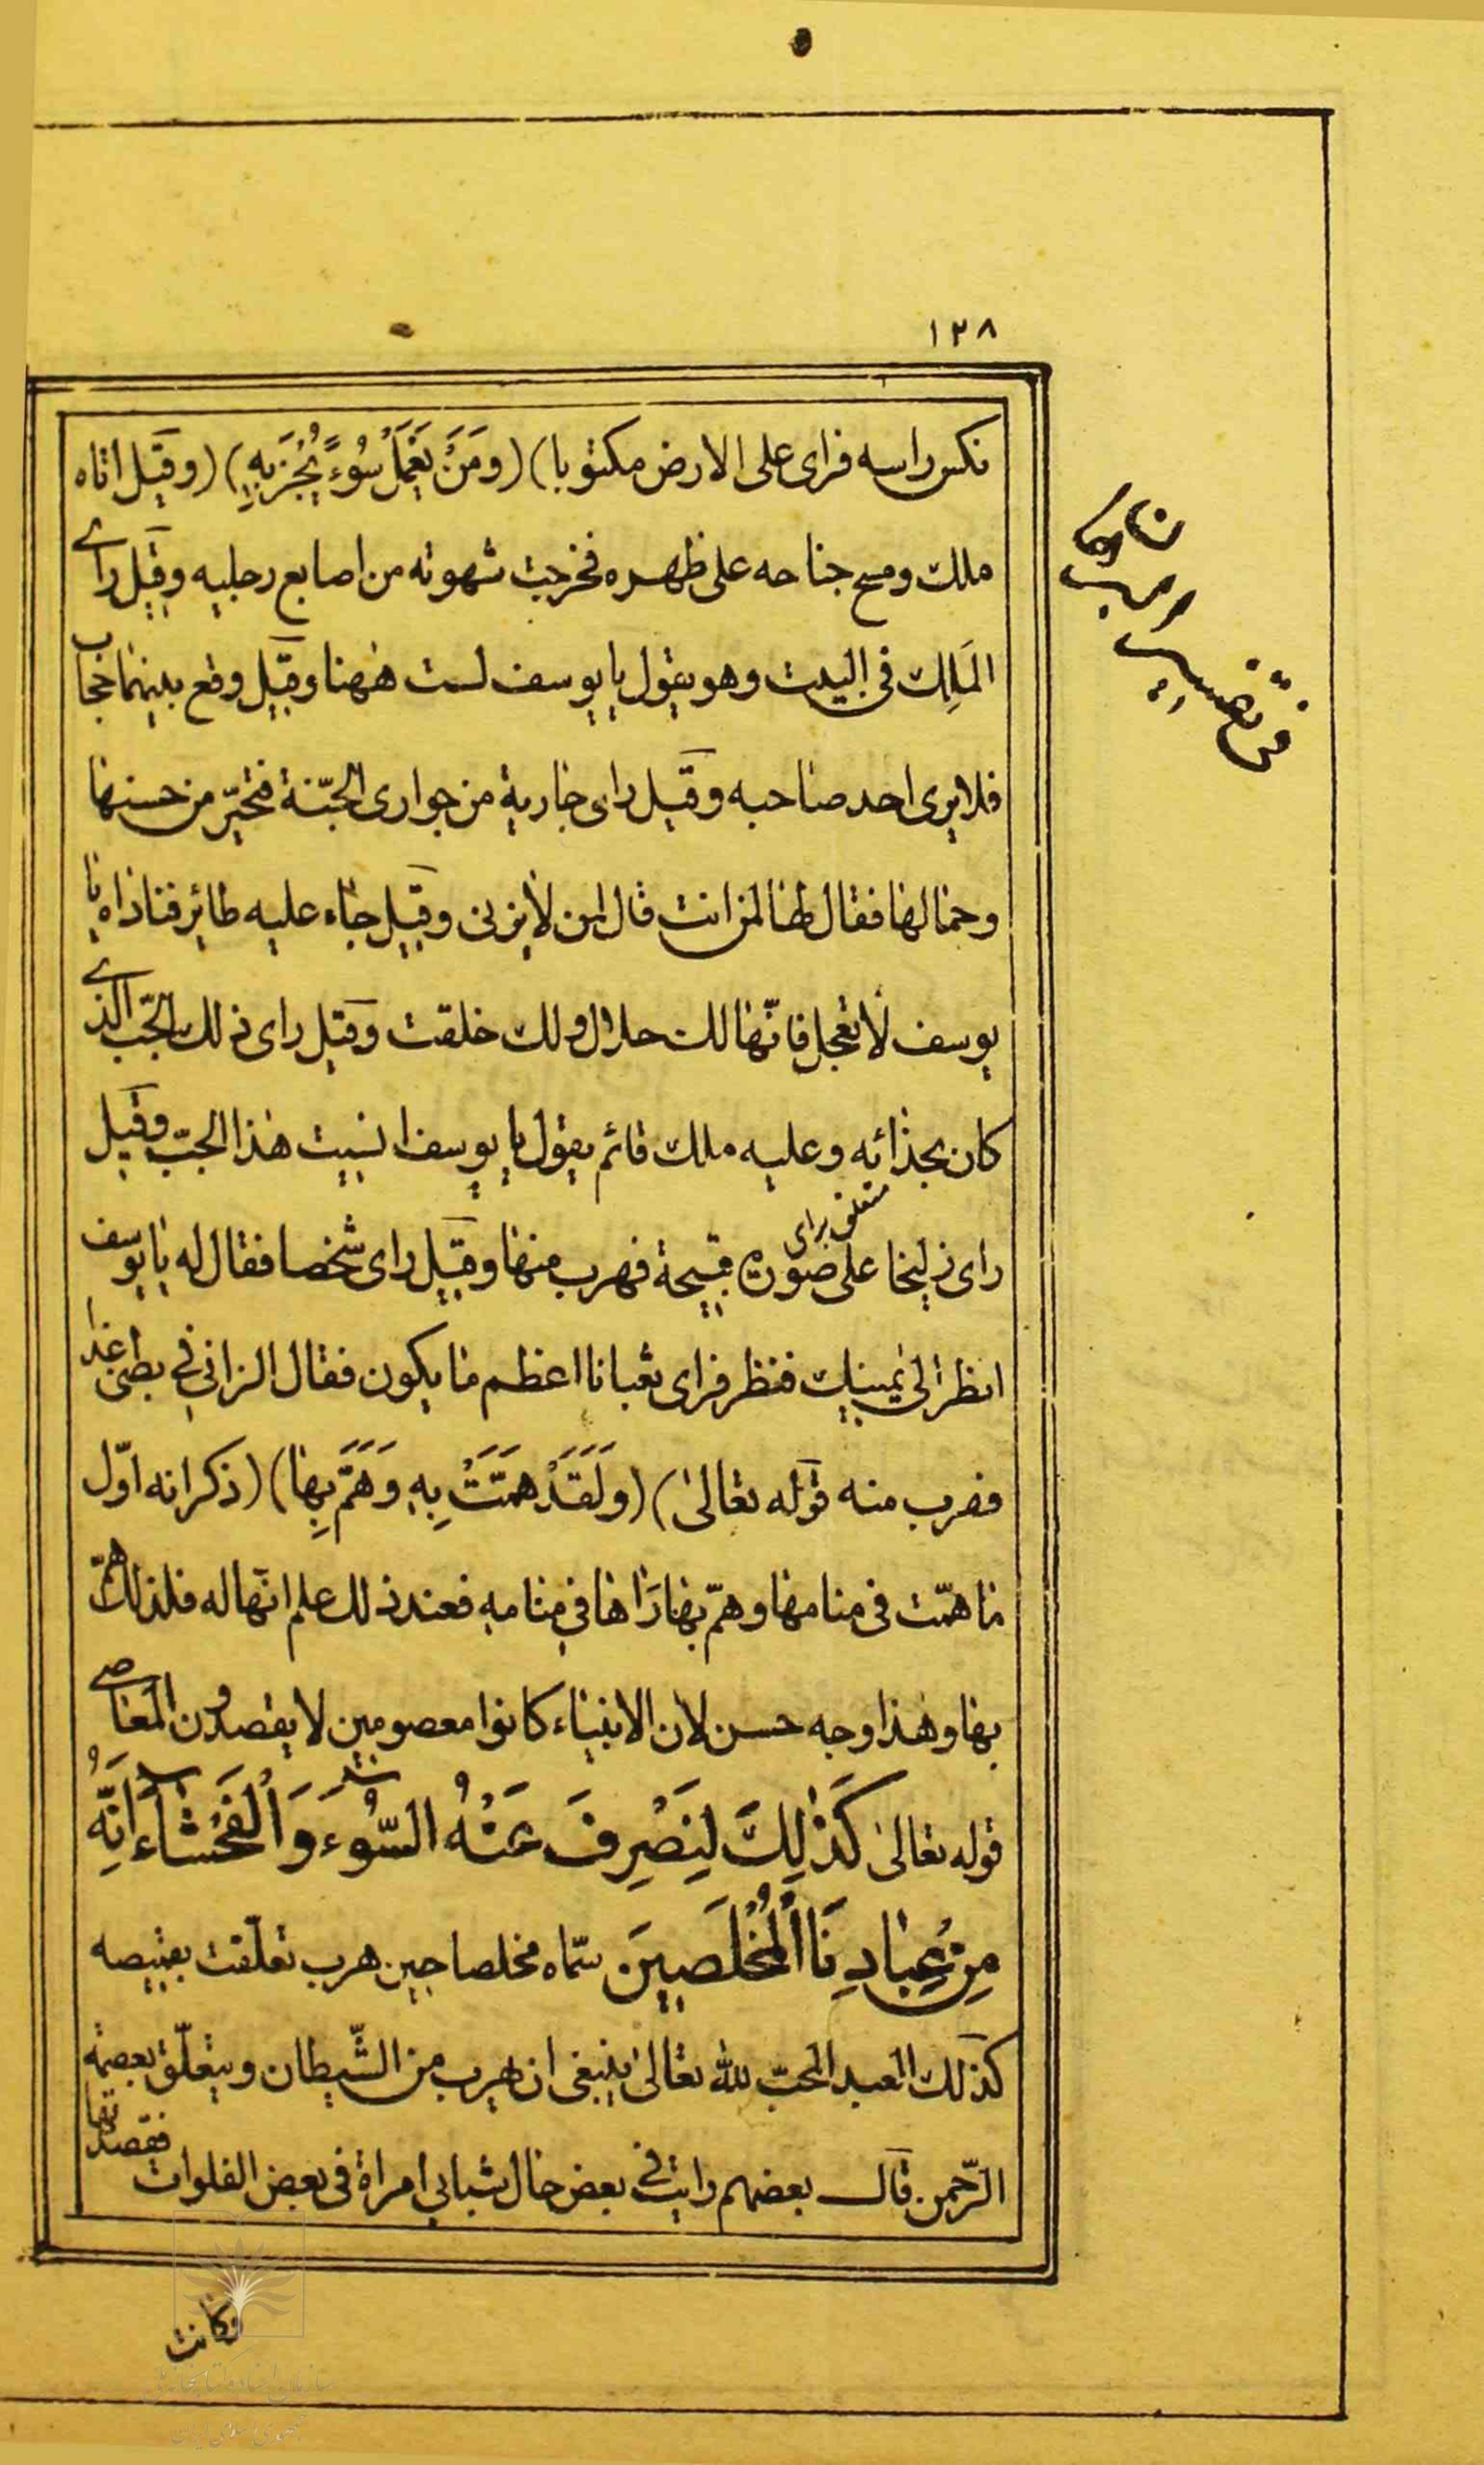 ١٢٨
نكس راسه فراى على الارض مكتوبا) (ومَنْ يَعْمَلْ سُوءً يُجْزَ بِهِ) (وقيل اتاه
ملك ومسح جناحه على ظهره فخرجت شهوته من اصابع رجليه وقيل راى
المَلِك فى البيت وهو يقول يا يوسف لست هٰهنا وقيل وقع بينهما حجاب
فلا يرى احد صاحبه وقيل راى جارية من جوارى الجنّة فتحيّر من حسنها
وجمالها فقال لها لمن انت قال لمن لا يزنى وقيل جاء عليه طائر فناداه يا
يوسف لا تعجل فانّها لك حلال ولك خلقت وقيل راى ذلك الجبّ الذى
كان بحذائه وعليه ملك قائم يقول يا يوسف انسيت هذا الجبّ وقيل
متعلق براى
راى زليخا على صورة قبيحة فهرب منها وقيل راى شخصا فقال له يا يوسف
انظر الى يمينك فنظر فراى ثعبانا اعظم ما يكون فقال الزانى فى بطنى غدا
فهرب منه قوله تعالىٰ) (ولَقَدْ هَمَّتْ بِهِ وَهَمَّ بِها) (ذكر انه اوّل
ما همّت فى منامها وهمّ بها رَاها في منامه فعند ذلك علم انّها له فلذلك همّ
بها وهذا وجه حسن لان الانبياء كانوا معصومين لا يقصدون المعاصى
قوله تعالىٰ كَذٰلِكَ لِنَصْرِفَ عَنْهُ السُّوءَ وَالْفَحْشاءَ اِنَّهُ
مِنْ عِبادِنَا الْمُخْلَصِينَ سمّاه مخلصا حين هرب تعلّقت بقميصه
كذلك العبد المحبّ لله تعالىٰ ينبغى ان يهرب من الشّيطان ويتعلّق بعصمة
الرّحمن قال بعضهم رايت فى بعض حال شبابى امراة فى بعض الفلوات فقصدتها
فكانت